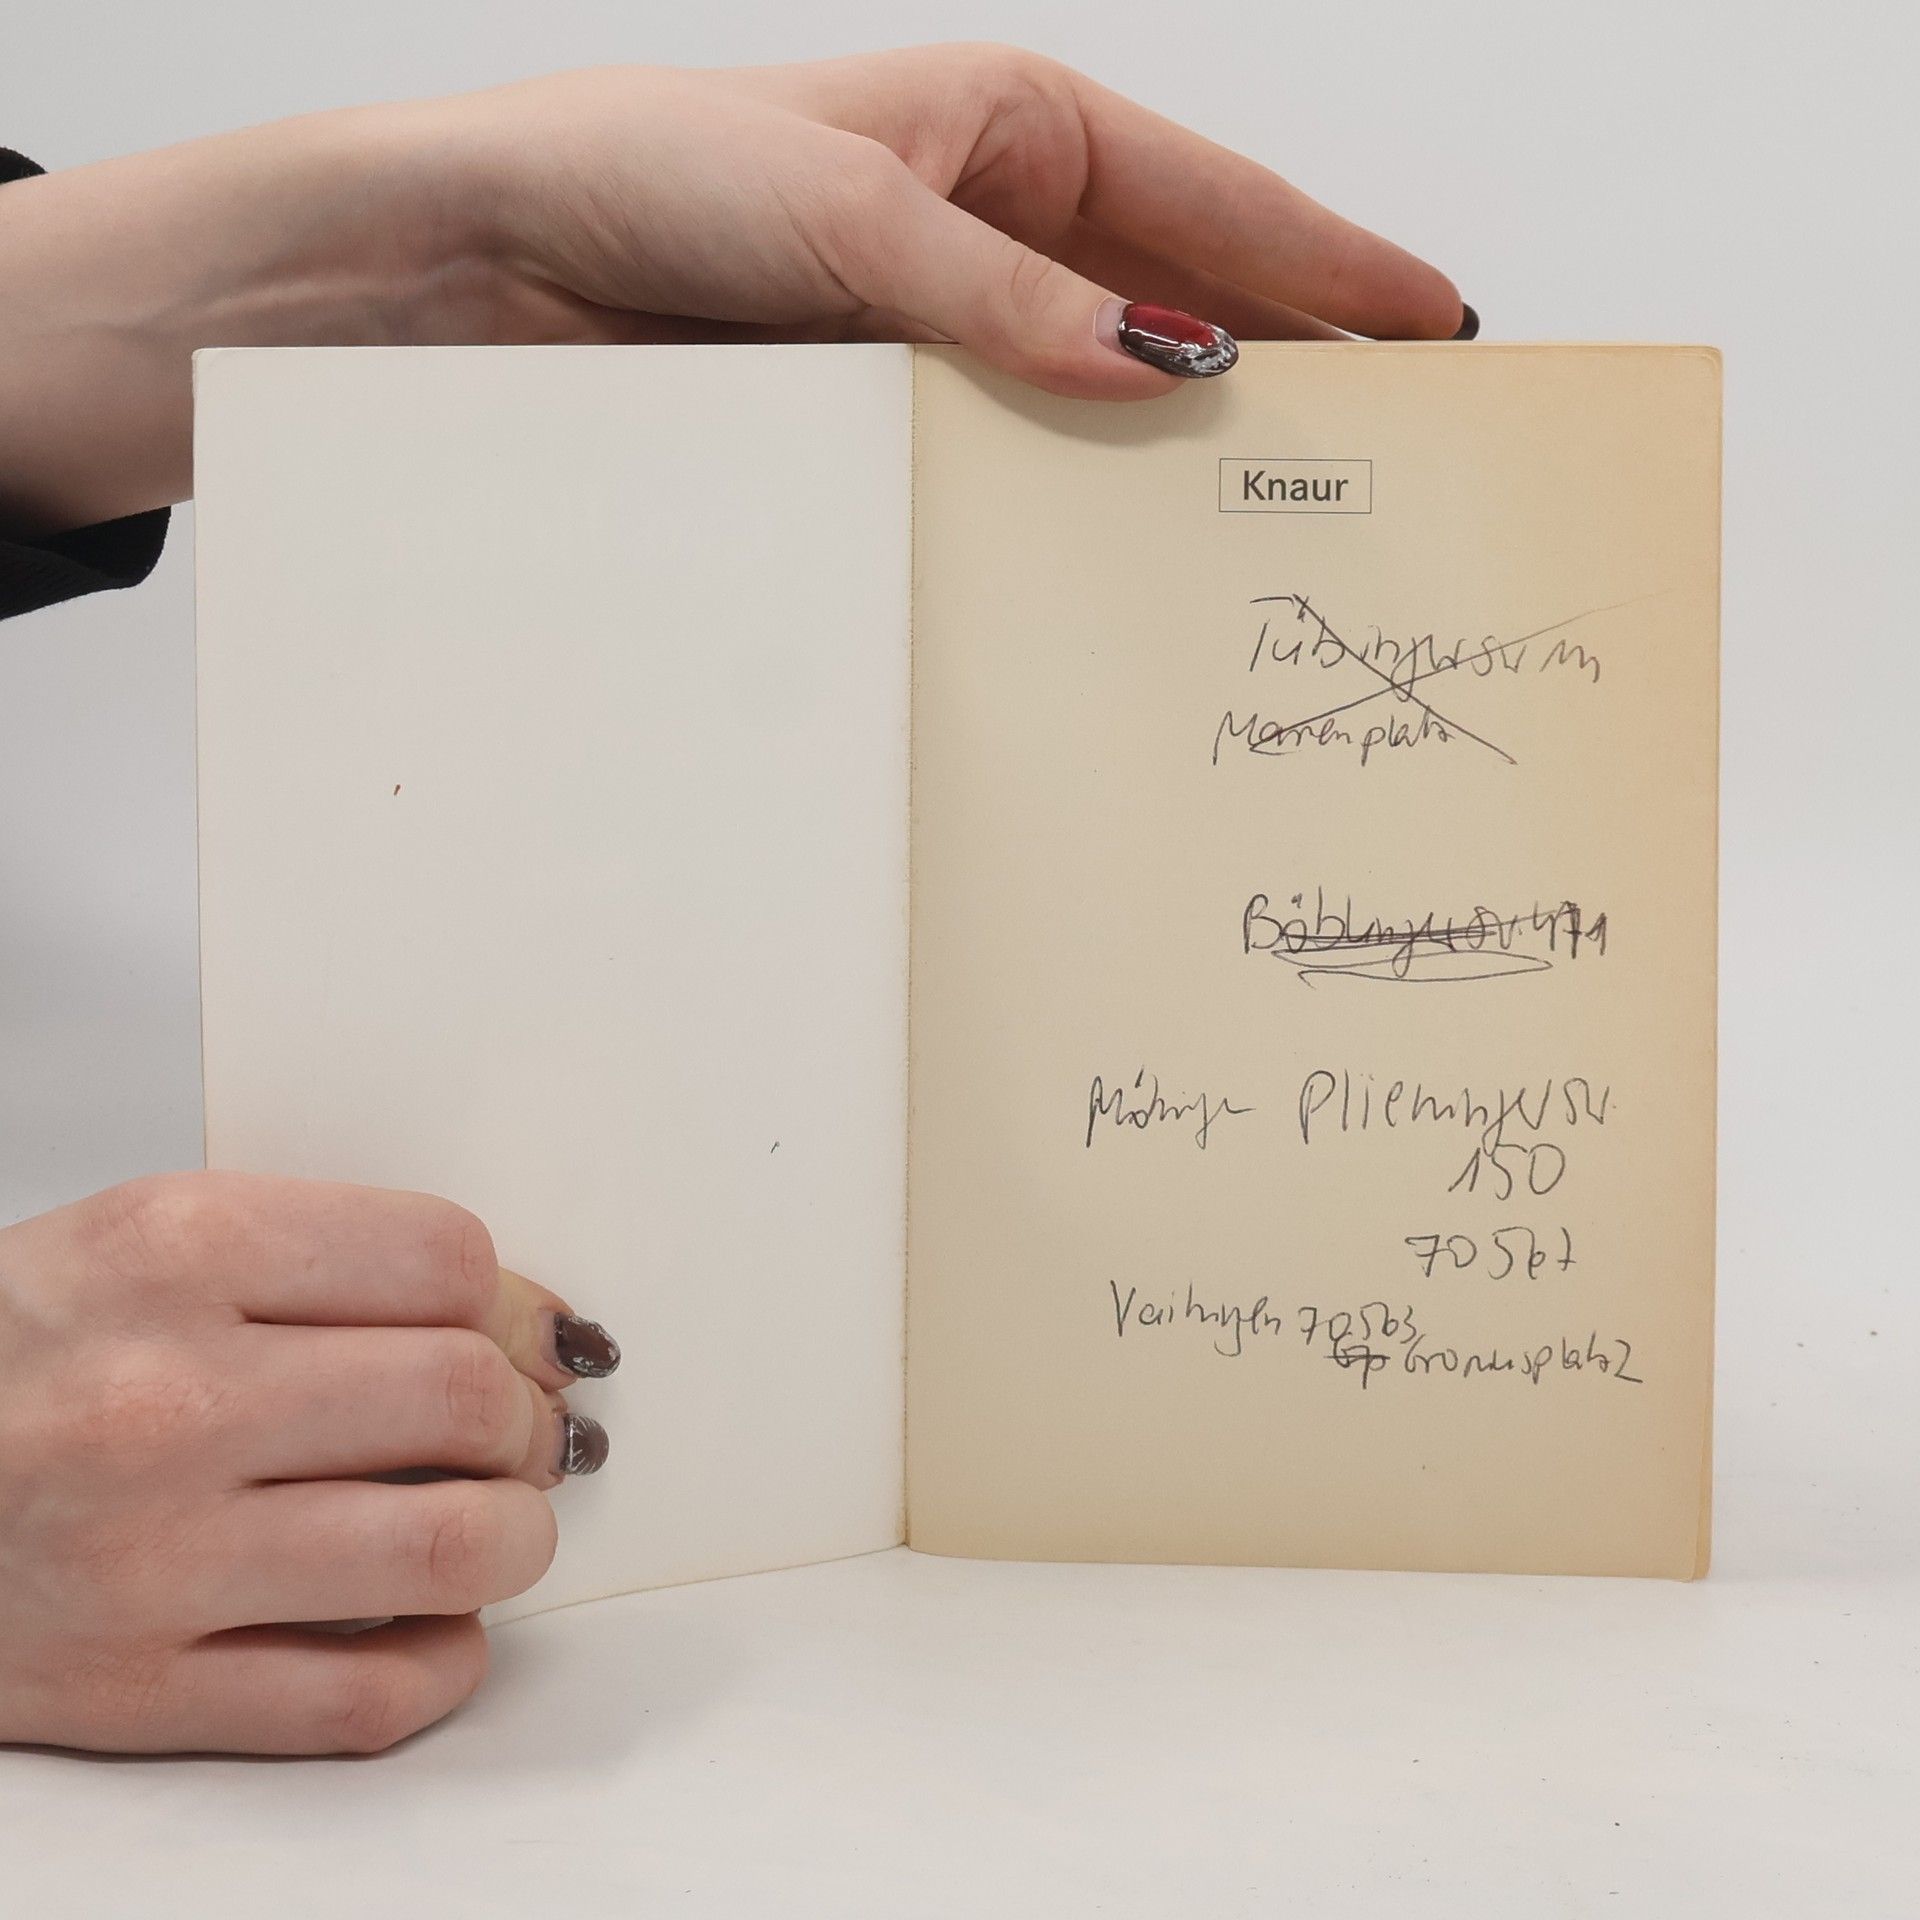 Knaur
Tübingerstr
Marienplatz
Böblingerstr. 471
Möhringen Plieningerstr.
150
70567
Vaihingen 70563
Gronnusplatz 2